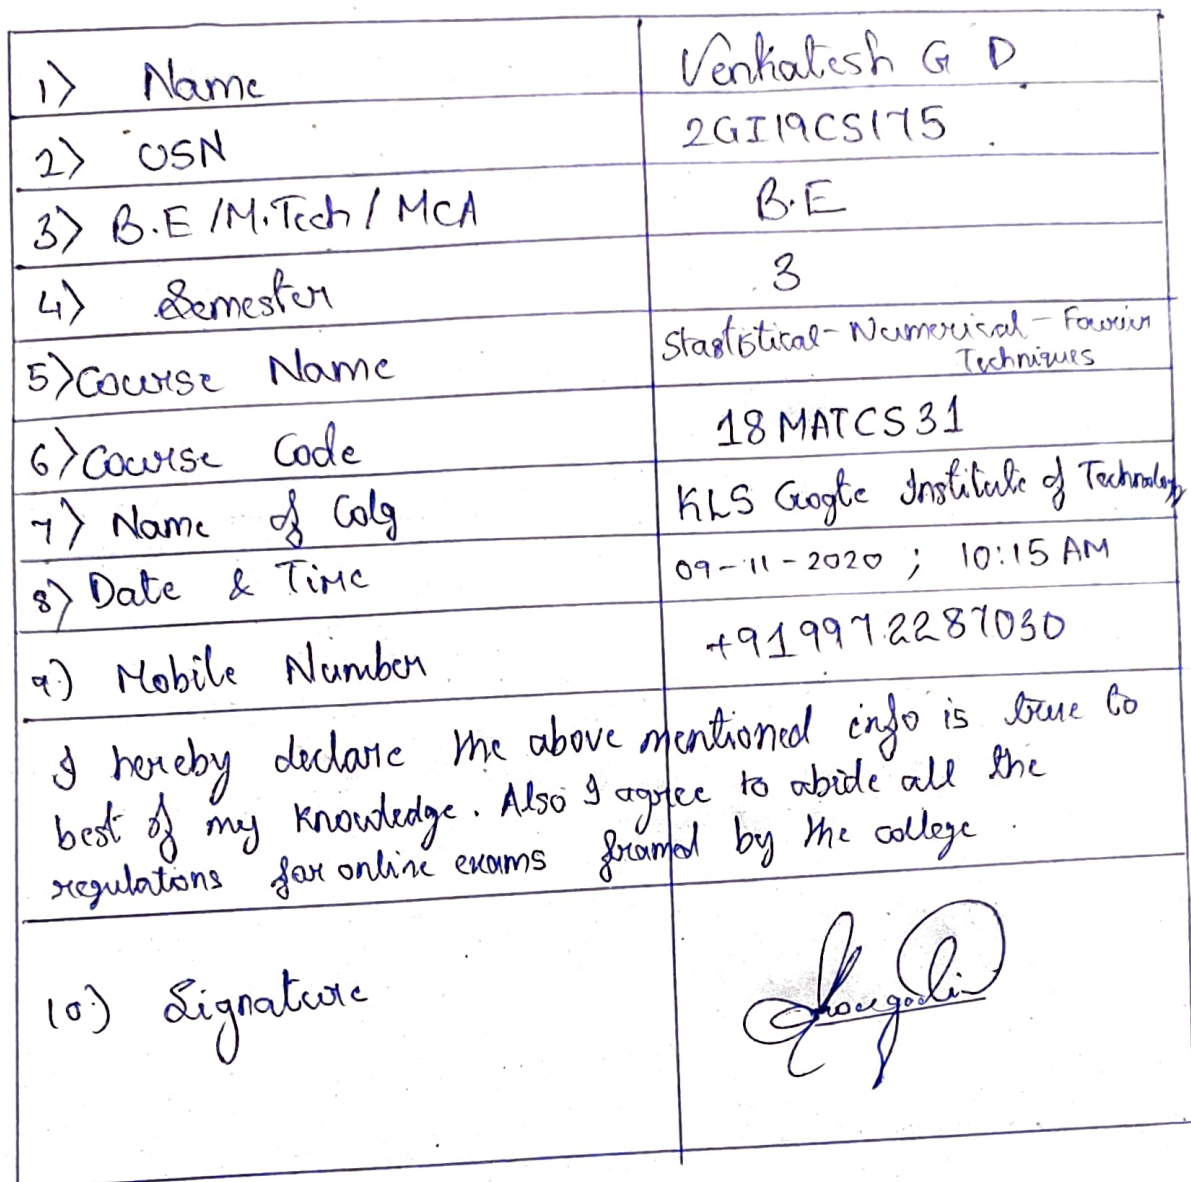 1) Name Venkatesh G D
2) USN 2GI19CS175
3) B.E /M.Tech / MCA B.E
4) Semester 3
5) Course Name Stastistical - Numerical - Fourier
Techniques
6) Course Code 18MATCS31
7) Name of Colg KLS Gogte Institute of Technology
8) Date & Time 09-11-2020 ; 10:15 AM
9.) Mobile Number +919972287030
I hereby declare the above mentioned info is true to
best of my knowledge. Also I agree to abide all the
regulations for online exams framed by the college.
10.) Signature